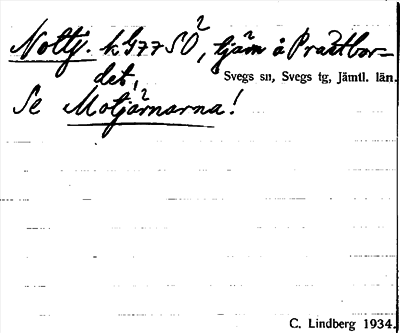 Nottj. k G77 SÖ, tjärn å Prastbor-
det,
Svegs sn, Svegs tg, Jämtl. län.
Se Motjärnarna!
C. Lindberg 1934.